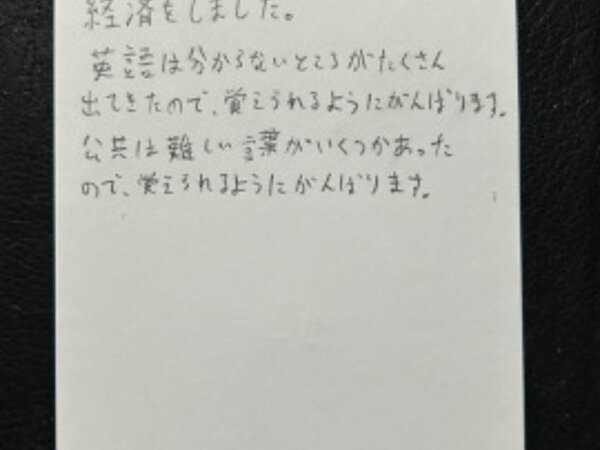 経済をしました。
英語は分からないところがたくさん
出てきたので、覚えられるようにがんばります。
公共は難しい言葉がいくつかあった
ので、覚えられるようにがんばります。